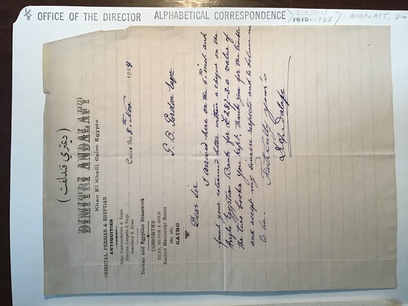 (ديمتري قندلفت)
DIMITRI ANDALAFT
Khan El Khalil, Cairo Egypte
ORIENTAL, PERSIAN & EGYPTIAN
ANTIQUITIES
Silks Embroideries & Tissus
Persian Carpets & Rugs
Jewellery & Arms
Persian and Egyptian Brasswork
CURIOSITIES
TILES, SILVER & GOLD
Ancient Manuscript Books
etc. etc.
CAIRO
Cairo the 8th Nov 1924
G. B. Gordon Esqre
Dear Sir
I arrived here on the inst and
found your esteemed letter within a cheque on the
Anglo Egyptian Bank for £ 287-3-0 value of
the two books you kept, thank you for the trouble
and accept my sincere respects and to believe me
to be.
Faithfully your's
D. Andalafte
OFFICE OF THE DIRECTOR ALPHABETICAL CORRESPONDENCE
ANDALAFT, D